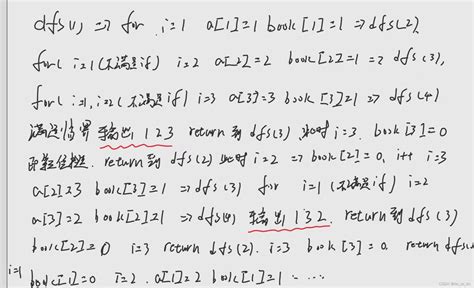 dfs(1) => for i=1 a[1]=1 book[1]=1 => dfs(2)
for( i=1(不满足if) i=2 a[2]=2 book[2]=1 => dfs(3),
for( i=1,i=2(不满足if) i=3 a[3]=3 book[3]=1 => dfs(4)
满足情界 输出 1 2 3 return 到 dfs(3) 此时 i=3. book[3]=0
return 到 dfs(2) 此时 i=2 => book[2]=0, i++ i=3
a[2]=3 book[3]=1 => dfs(3) for i=1(不满足if) i=2
a[3]=2 book[2]=1 => dfs(4) 输出 1 3 2. return 到 dfs(3)
book[2]=0 i=3 return dfs(2). i=3 book[3]=0. return dfs(
i=1 book[1]=0 i=2. a[1]=2 book[1]=1 ......